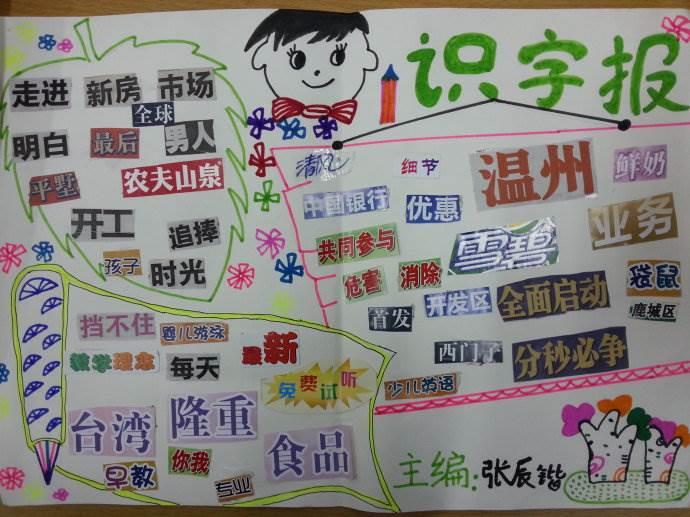 识字报
走进 新房 市场
全球
明白 最后 男人
平墅 农夫山泉
开工 追捧
孩子 时光
清风 细节 温州 鲜奶
中国银行 优惠 业务
共同参与 雪碧
危害 消除 袋鼠
首发 开发区 全面启动 鹿城区
西门子 分秒必争
少儿英语
挡不住 婴儿游泳
教学理念 每天 最新
免费试听
台湾 隆重 食品
早教 你我
专业
主编:张辰锴